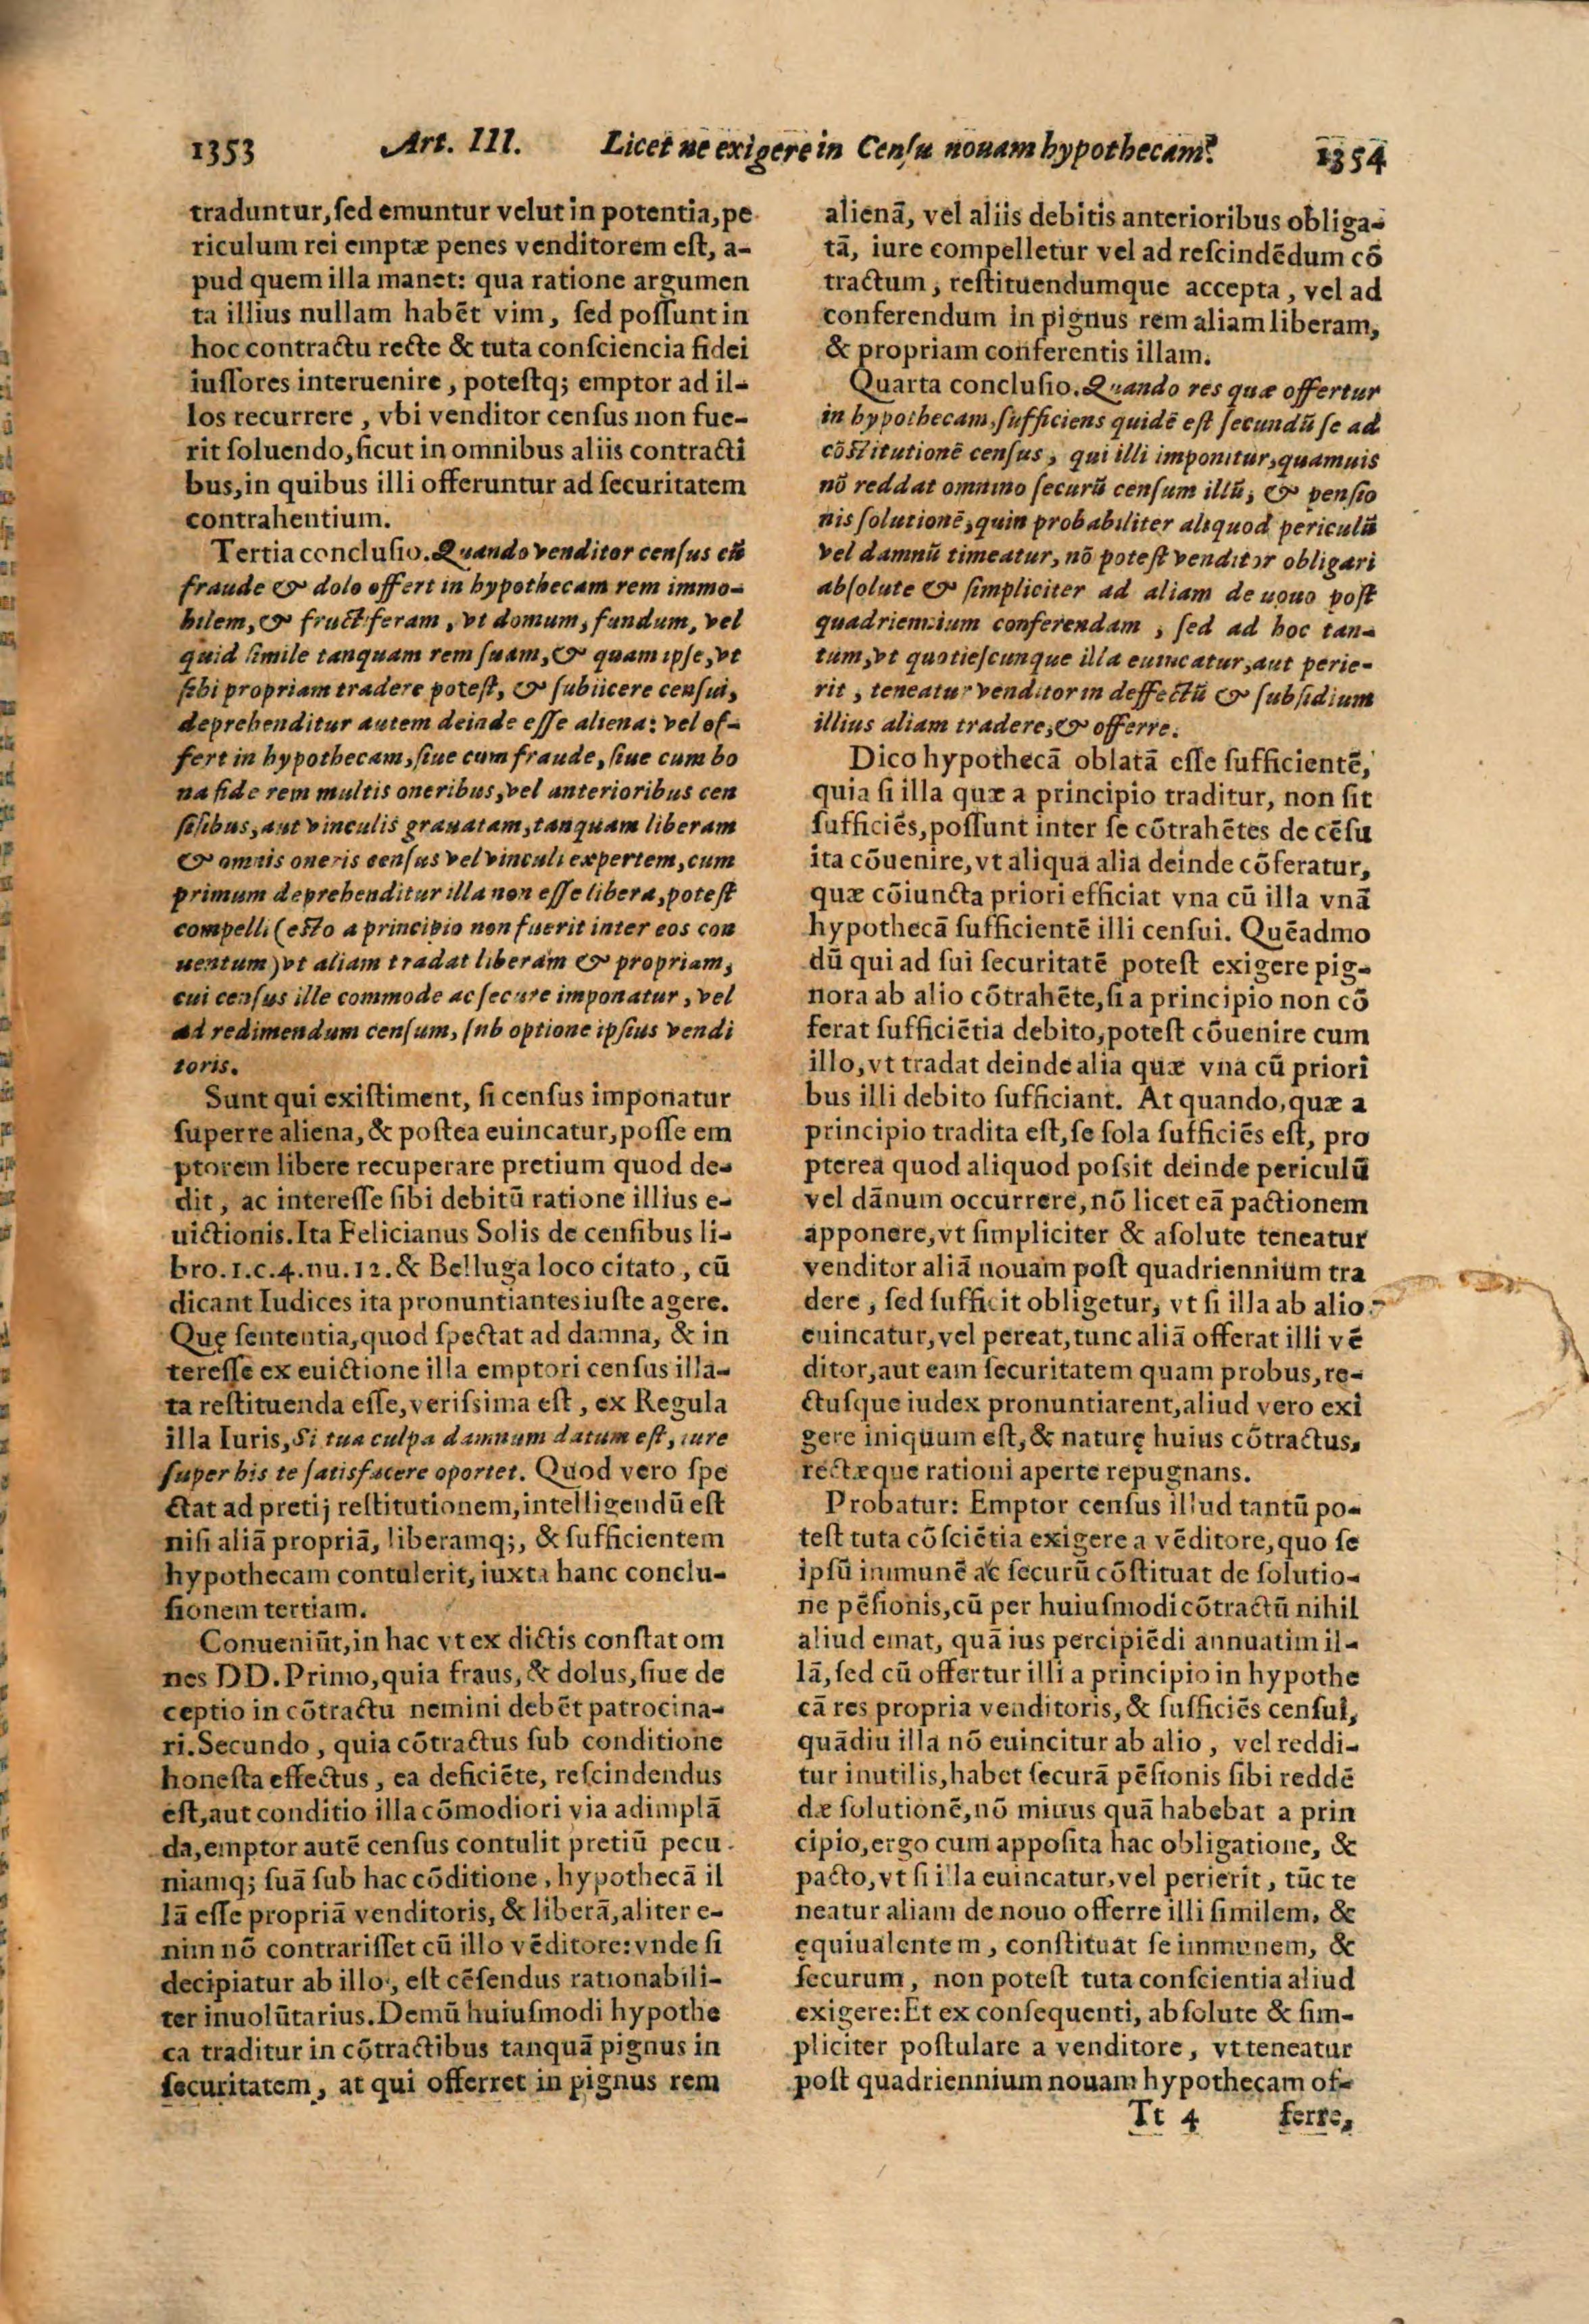 1353 Art. III. Licet ne exigere in Cenſu nouam hypothecam? 1354
traduntur, ſed emuntur velut in potentia, pe
riculum rei emptæ penes venditorem eſt, a-
pud quem illa manet: qua ratione argumen
ta illius nullam habēt vim, ſed poſſunt in
hoc contractu recte & tuta conſciencia fidei
iuſſores interuenire, poteſtq; emptor ad il-
los recurrere, vbi venditor cenſus non fue-
rit ſoluendo, ſicut in omnibus aliis contracti
bus, in quibus illi offeruntur ad ſecuritatem
contrahentium.
Tertia concluſio. Quando venditor cenſus cū
fraude & dolo offert in hypothecam rem immo-
bilem, & fructiferam, vt domum, fundum, vel
quid ſimile tanquam rem ſuam, & quam ipſe, vt
ſibi propriam tradere poteſt, & ſubiicere cenſui,
deprehenditur autem deinde eſſe aliena: vel of-
fert in hypothecam, ſiue cum fraude, ſiue cum bo
na fide rem multis oneribus, vel anterioribus cen
ſibus, aut vinculis grauatam, tanquam liberam
& omnis oneris cenſus vel vinculi expertem, cum
primum deprehenditur illa non eſſe libera, poteſt
compelli (eſto a principio non fuerit inter eos con
uentum) vt aliam tradat liberam & propriam,
cui cenſus ille commode ac ſecure imponatur, vel
ad redimendum cenſum, ſub optione ipſius vendi
toris.
Sunt qui exiſtiment, ſi cenſus imponatur
ſuper re aliena, & poſtea euincatur, poſſe em
ptorem libere recuperare pretium quod de-
dit, ac intereſſe ſibi debitū ratione illius e-
uictionis. Ita Felicianus Solis de cenſibus li-
bro. 1. c. 4. nu. 12. & Belluga loco citato, cū
dicant Iudices ita pronuntiantes iuſte agere.
Quę ſententia, quod ſpectat ad damna, & in
tereſſe ex euictione illa emptori cenſus illa-
ta reſtituenda eſſe, veriſsima eſt, ex Regula
illa Iuris, Si tua culpa damnum datum eſt, iure
ſuper his te ſatisfacere oportet. Quod vero ſpe
ctat ad pretij reſtitutionem, intelligendū eſt
niſi aliā propriā, liberamq;, & ſufficientem
hypothecam contulerit, iuxta hanc conclu-
ſionem tertiam.
Conueniūt, in hac vt ex dictis conſtat om
nes DD. Primo, quia fraus, & dolus, ſiue de
ceptio in cōtractu nemini debēt patrocina-
ri. Secundo, quia cōtractus ſub conditione
honeſta effectus, ea deficiēte, reſcindendus
eſt, aut conditio illa cōmodiori via adimplā
da, emptor autē cenſus contulit pretiū pecu
niamq; ſuā ſub hac cōditione, hypothecā il
lā eſſe propriā venditoris, & liberā, aliter e-
nim nō contrariſſet cū illo vēditore: vnde ſi
decipiatur ab illo, eſt cēſendus rationabili-
ter inuolūtarius. Demū huiuſmodi hypothe
ca traditur in cōtractibus tanquā pignus in
ſecuritatem, at qui offerret in pignus rem
alienā, vel aliis debitis anterioribus obliga-
tā, iure compelletur vel ad reſcindēdum cō
tractum, reſtituendumque accepta, vel ad
conferendum in pignus rem aliam liberam,
& propriam conferentis illam.
Quarta concluſio. Quando res quæ offertur
in hypothecam, ſufficiens quidē eſt ſecundū ſe ad
cōſtitutionē cenſus, qui illi imponitur, quamuis
nō reddat omnino ſecurū cenſum illū, & penſio
nis ſolutionē, quin probabiliter aliquod periculū
vel damnū timeatur, nō poteſt venditor obligari
abſolute & ſimpliciter ad aliam de nouo poſt
quadriennium conferendam, ſed ad hoc tan-
tum, vt quotieſcunque illa euincatur, aut perie-
rit, teneatur venditor in deffectū & ſubſidium
illius aliam tradere, & offerre.
Dico hypothecā oblatā eſſe ſufficientē,
quia ſi illa quæ a principio traditur, non ſit
ſufficiēs, poſſunt inter ſe cōtrahētes de cēſu
ita cōuenire, vt aliqua alia deinde cōferatur,
quæ cōiuncta priori efficiat vna cū illa vnā
hypothecā ſufficientē illi cenſui. Quēadmo
dū qui ad ſui ſecuritatē poteſt exigere pig-
nora ab alio cōtrahēte, ſi a principio non cō
ferat ſufficiētia debito, poteſt cōuenire cum
illo, vt tradat deinde alia quæ vna cū priori
bus illi debito ſufficiant. At quando, quæ a
principio tradita eſt, ſe ſola ſufficiēs eſt, pro
pterea quod aliquod poſsit deinde periculū
vel dānum occurrere, nō licet eā pactionem
apponere, vt ſimpliciter & aſolute teneatur
venditor aliā nouam poſt quadriennium tra
dere, ſed ſufficit obligetur, vt ſi illa ab alio
euincatur, vel pereat, tunc aliā offerat illi vē
ditor, aut eam ſecuritatem quam probus, re-
ctuſque iudex pronuntiarent, aliud vero exi
gere iniquum eſt, & naturę huius cōtractus,
rectæque rationi aperte repugnans.
Probatur: Emptor cenſus illud tantū po-
teſt tuta cōſciētia exigere a vēditore, quo ſe
ipſū immunē ac ſecurū cōſtituat de ſolutio-
ne pēſionis, cū per huiuſmodi cōtractū nihil
aliud emat, quā ius percipiēdi annuatim il-
lā, ſed cū offertur illi a principio in hypothe
cā res propria venditoris, & ſufficiēs cenſui,
quādiu illa nō euincitur ab alio, vel reddi-
tur inutilis, habet ſecurā pēſionis ſibi reddē
dæ ſolutionē, nō minus quā habebat a prin
cipio, ergo cum appoſita hac obligatione, &
pacto, vt ſi illa euincatur, vel perierit, tūc te
neatur aliam de nouo offerre illi ſimilem, &
ęquiualentem, conſtituat ſe immunem, &
ſecurum, non poteſt tuta conſcientia aliud
exigere: Et ex conſequenti, abſolute & ſim-
pliciter poſtulare a venditore, vt teneatur
poſt quadriennium nouam hypothecam of-
Tt 4 ferre,